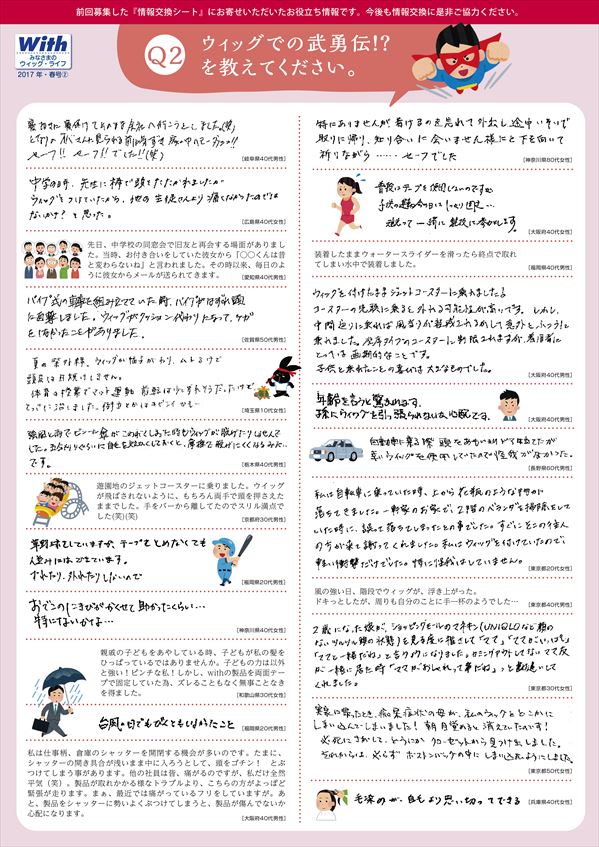 前回募集した『情報交換シート』にお寄せいただいたお役立ち情報です。今後も情報交換に是非ご協力ください。
With
みなさまの
ウィッグ・ライフ
2017年・春号②
Q2
ウィッグでの武勇伝!?
を教えてください。
セーフ!! セーフ!! でした!!(笑)
[岐阜県40代男性]
中学の時、先生に棒で頭をたたかれましたが
ウィッグをつけていたから、他の生徒さんより痛くなかったのでは
ないかな? と思った。
[広島県40代女性]
先日、中学校の同窓会で旧友と再会する場面がありまし
た。当時、お付き合いをしていた彼女から「〇〇くんは昔
と変わらないね」と言われました。その時以来、毎日のよ
うに彼女からメールが送られてきます。
[愛知県40代男性]
パイプ式の車庫を組み立てていた時、パイプがはずれ頭
に直撃しました。ウィッグがクッション代わりになって、ケガ
をしなかったことがありました。
[佐賀県50代男性]
夏の紫外線、ウィッグが帽子がわり、ムレるけど
頭皮は日焼けしません。
体育の授業でマット運動 前転は少しずれそうだったけど
[埼玉県10代女性]
です。
[栃木県40代男性]
遊園地のジェットコースターに乗りました。ウイッグ
が飛ばされないように、もちろん両手で頭を押さえた
ままでした。手をバーから離してたのでスリル満点で
した(笑)(笑)
[京都府30代男性]
年野球をしていますが、テープをとめなくても
人並みにはできています。
ずれたり、外れたりしないので
[福岡県20代男性]
おでこのにきびがかくせて助かったくらい…
特にないかなぁ…
[神奈川県40代男性]
親戚の子どもをあやしている時、子どもが私の髪を
ひっぱっているではありませんか。子どもの力は以外
と強い!ピンチな私!しかし、withの製品を両面テー
プで固定していた為、ズレることもなく無事ことなき
を得ました。
[和歌山県30代女性]
台風の日でもびくともしなかったこと
[福岡県20代男性]
私は仕事柄、倉庫のシャッターを開閉する機会が多いのです。たまに、
シャッターの開き具合が浅いまま中に入ろうとして、頭をゴチン! とぶ
つけてしまう事があります。他の社員は皆、痛がるのですが、私だけ全然
平気(笑)。製品が取れかかる様なトラブルより、こちらの方がよっぽど
緊張が走ります。まぁ、最近では痛がっているフリをしていますが。あ
と、製品をシャッターに勢いよくぶつけてしまうと、製品が傷んでないか
心配になります。
[大阪府40代男性]
特にありませんが、着けるのを忘れて外出し途中いそいで
取りに帰り、知り合いに会いません様にと下を向いて
祈りながら……セーフでした
[神奈川県80代女性]
普段はテープを使用しないのですが
子供の運動会の日はしっかり固定…
[大阪府40代女性]
装着したままウォータースライダーを滑ったら終点で取れ
てしまい水中で装着しました。
[福岡県40代男性]
ウィッグを付けたままジェットコースターに乗れましたよ
コースターの先頭に乗ると外れる可能性が高いです。しかし、
中間辺りに乗れば風当りが軽減されるかして意外とふつうに
乗れました。
とっては画期的なことです。
子供と乗れたことの喜びは大きなものでした。
[大阪府40代男性]
年齢を言うと驚きれます。
孫にウィッグを引っ張られないか、心配です。
[大阪府40代男性]
自動車に乗る際 頭をあちいかどで強打てたが
幸いウィッグを使用していたので怪我がなかった。
[長野県60代男性]
私は自転車に乗っていた時、上から花瓶のような物が
落ちてきました。一軒家のお家で、2階のベランダを掃除をして
いた時に、誤って落としまったとの事でした。すぐにその住人
の方が来て謝ってくれました。私はウィッグを付けていたので
軽い衝撃だけでした。特に怪我はしていません。
[東京都20代女性]
風の強い日、階段でウィッグが、浮き上がった。
ドキっとしたが、周りも自分のことに手一杯のようでした…
[東京都40代男性]
2歳になった娘が、ショッピングモールのマネキン(UNIQLOなど顔の
ないツルツル頭の状態)を見る度に指さして「ママ」「ママがいっぱい」
「ママと一緒だね」と言うようになりました。カミングアウトしてないママ友
が一緒に居た時「ママがおしゃれって事だね」っと勘違いして
くれました。
[東京都30代女性]
実家に帰ったとき、痴呆症状の母が、私のウィッグをどこかに
しまい込んでしまいました! 朝目覚めると消えていたんです!
必死にさがして、どうにかクローゼットから見つけ出しました。
それからは、必らずボストンバックの中にしまい込むようにしました。
[東京都50代女性]
毛染めが、自毛より思い切ってできる
[兵庫県40代女性]